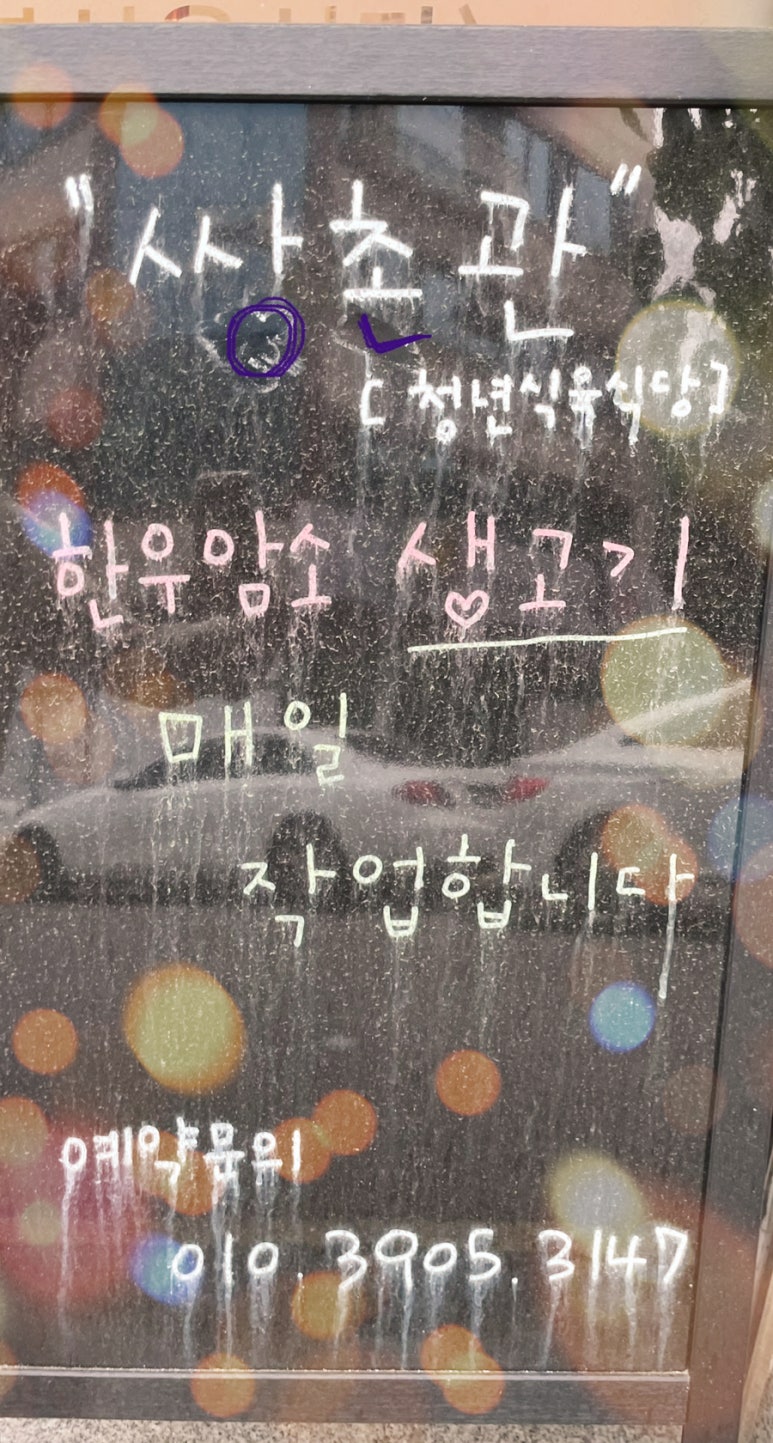 "쌍촌관"
[청년식육식당]
한우암소 생고기
매일
작업합니다
예약문의
010.3905.3147